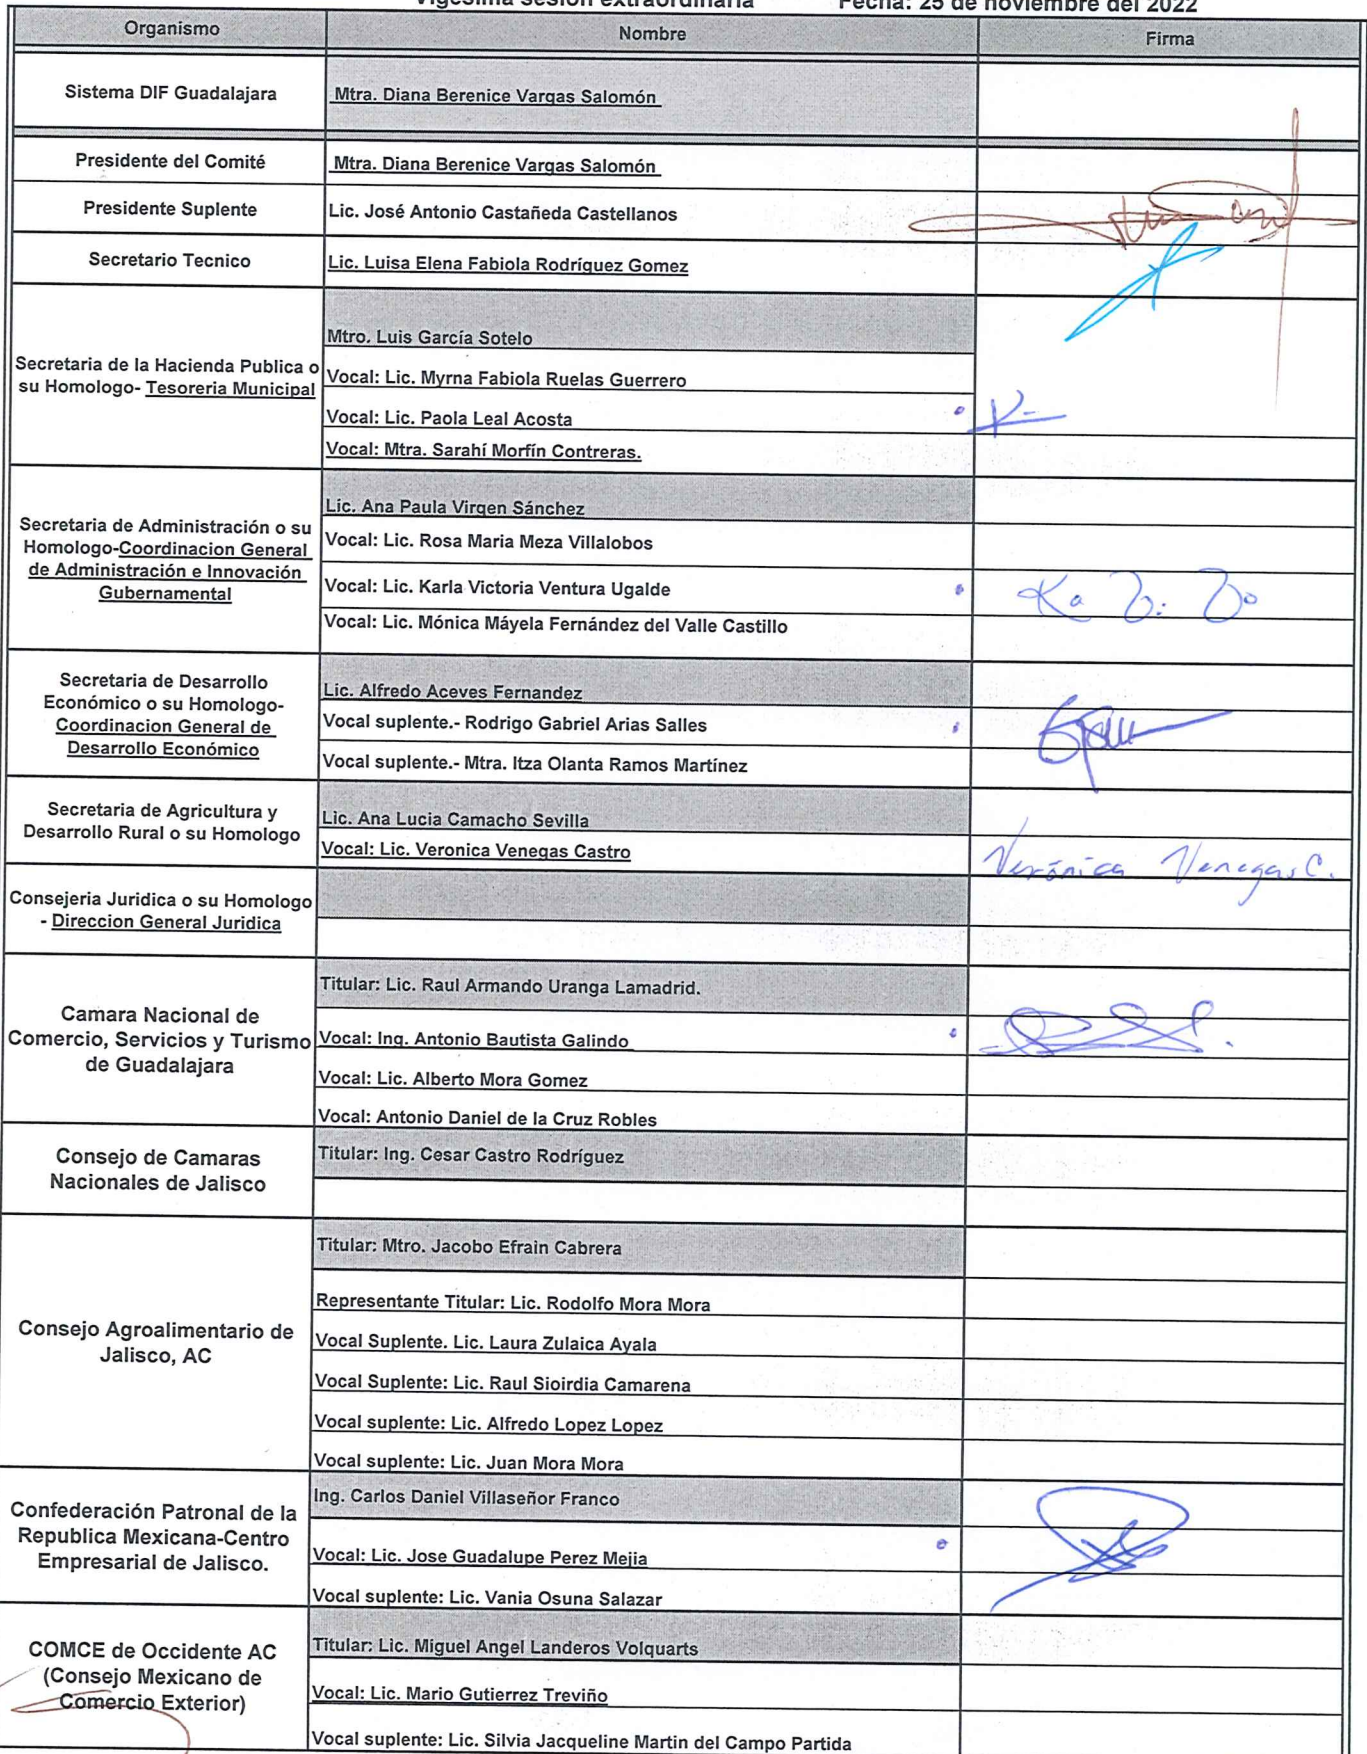 Vigesima sesion extraordinaria Fecha: 25 de noviembre del 2022
Organismo Nombre Firma
Sistema DIF Guadalajara Mtra. Diana Berenice Vargas Salomón
Presidente del Comité Mtra. Diana Berenice Vargas Salomón
Presidente Suplente Lic. José Antonio Castañeda Castellanos
Secretario Tecnico Lic. Luisa Elena Fabiola Rodríguez Gomez
Secretaria de la Hacienda Publica o
su Homologo- Tesoreria Municipal
Mtro. Luis García Sotelo
Vocal: Lic. Myrna Fabiola Ruelas Guerrero
Vocal: Lic. Paola Leal Acosta
Vocal: Mtra. Sarahí Morfín Contreras.
Secretaria de Administración o su
Homologo-Coordinacion General
de Administración e Innovación
Gubernamental
Lic. Ana Paula Virgen Sánchez
Vocal: Lic. Rosa Maria Meza Villalobos
Vocal: Lic. Karla Victoria Ventura Ugalde
Vocal: Lic. Mónica Máyela Fernández del Valle Castillo
Secretaria de Desarrollo
Económico o su Homologo-
Coordinacion General de
Desarrollo Económico
Lic. Alfredo Aceves Fernandez
Vocal suplente.- Rodrigo Gabriel Arias Salles
Vocal suplente.- Mtra. Itza Olanta Ramos Martínez
Secretaria de Agricultura y
Desarrollo Rural o su Homologo
Lic. Ana Lucia Camacho Sevilla
Vocal: Lic. Veronica Venegas Castro
Verónica Venegas C.
Consejeria Juridica o su Homologo
- Direccion General Juridica
Camara Nacional de
Comercio, Servicios y Turismo
de Guadalajara
Titular: Lic. Raul Armando Uranga Lamadrid.
Vocal: Ing. Antonio Bautista Galindo
Vocal: Lic. Alberto Mora Gomez
Vocal: Antonio Daniel de la Cruz Robles
Consejo de Camaras
Nacionales de Jalisco
Titular: Ing. Cesar Castro Rodríguez
Consejo Agroalimentario de
Jalisco, AC
Titular: Mtro. Jacobo Efrain Cabrera
Representante Titular: Lic. Rodolfo Mora Mora
Vocal Suplente. Lic. Laura Zulaica Ayala
Vocal Suplente: Lic. Raul Sioirdia Camarena
Vocal suplente: Lic. Alfredo Lopez Lopez
Vocal suplente: Lic. Juan Mora Mora
Confederación Patronal de la
Republica Mexicana-Centro
Empresarial de Jalisco.
Ing. Carlos Daniel Villaseñor Franco
Vocal: Lic. Jose Guadalupe Perez Mejia
Vocal suplente: Lic. Vania Osuna Salazar
COMCE de Occidente AC
(Consejo Mexicano de
Comercio Exterior)
Titular: Lic. Miguel Angel Landeros Volquarts
Vocal: Lic. Mario Gutierrez Treviño
Vocal suplente: Lic. Silvia Jacqueline Martin del Campo Partida